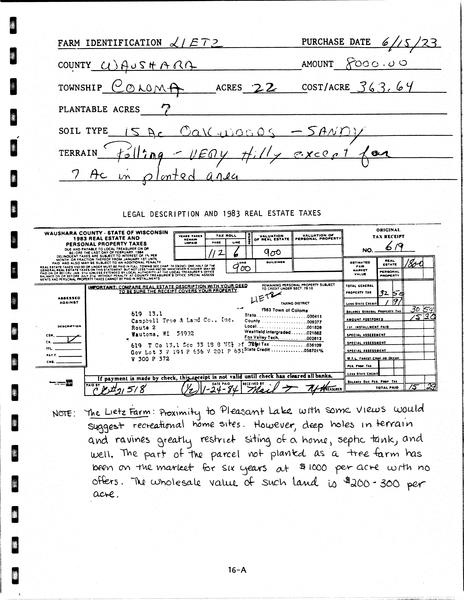 FARM IDENTIFICATION LIETZ PURCHASE DATE 6/15/23
COUNTY WAUSHARA AMOUNT 8000.00
TOWNSHIP COLOMA ACRES 22 COST/ACRE 363.64
PLANTABLE ACRES 7
SOIL TYPE 15 Ac Oakwoods - SANDY
TERRAIN Rolling - VERY Hilly except for
7 Ac in planted area
LEGAL DESCRIPTION AND 1983 REAL ESTATE TAXES
WAUSHARA COUNTY - STATE OF WISCONSIN
1983 REAL ESTATE AND
PERSONAL PROPERTY TAXES
TAX ROLL
PAGE LINE
112 6
900
VALUATION OF REAL ESTATE
900
BUILDINGS
VALUATION OF PERSONAL PROPERTY
ORIGINAL
TAX RECEIPT
NO. 619
ESTIMATED FAIR MARKET VALUE
REAL ESTATE
PERSONAL PROPERTY
IMPORTANT: COMPARE REAL ESTATE DESCRIPTION WITH YOUR DEED
TO BE SURE THE RECEIPT COVERS YOUR PROPERTY
LIETZ
TAXING DISTRICT
1983 Town of Coloma
ASSESSED AGAINST
619 13.1
Campbell Tree & Land Co., Inc.
Route 2
Wautoma, WI 54982
DESCRIPTION
State
County
Local
Westfield Intergraded
Fox Valley Tech.
State Credit
V 300 P 372
TOTAL GENERAL PROPERTY TAX 32 50
Less State Credit 1 91
BALANCE GENERAL PROPERTY TAX 30 59
AMOUNT POSTPONED 15 30
1ST. INSTALLMENT PAID
SPECIAL ASSESSMENT
SPECIAL ASSESSMENT
SPECIAL ASSESSMENT
TOTAL PAID 15 29
If payment is made by check, this receipt is not valid until check has cleared all banks.
PAID BY CK# 21518 DATE PAID 1-24-84 RECEIVED BY TREASURER
NOTE: The Lietz Farm: Proximity to Pleasant Lake with some views would
suggest recreational home sites. However, deep holes in terrain
and ravines greatly restrict siting of a home, septic tank, and
well. The part of the parcel not planted as a tree farm has
been on the market for six years at $1000 per acre with no
offers. The wholesale value of such land is $200-300 per
acre.
16-A